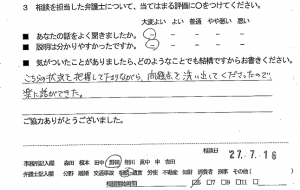 3 相談を担当した弁護士について、当てはまる評価に○をつけてください。
大変よい よい 普通 やや悪い 悪い
・ あなたの話をよく聞きましたか。
・ 説明は分かりやすかったですか。
・ 気がついたことがありましたら、どのようなことでも結構ですからお書きください。
こちらの状況を把握して下さりながら、問題点を洗い出してくださったので
楽に話ができた。
ご協力ありがとうございました。
相談日 27.7.16
事務所記入欄 森田 榎本 田中
弁護士記入欄 分野 離婚 交通事故 相続遺言 労働 不動産 消費者 刑事 その他( )